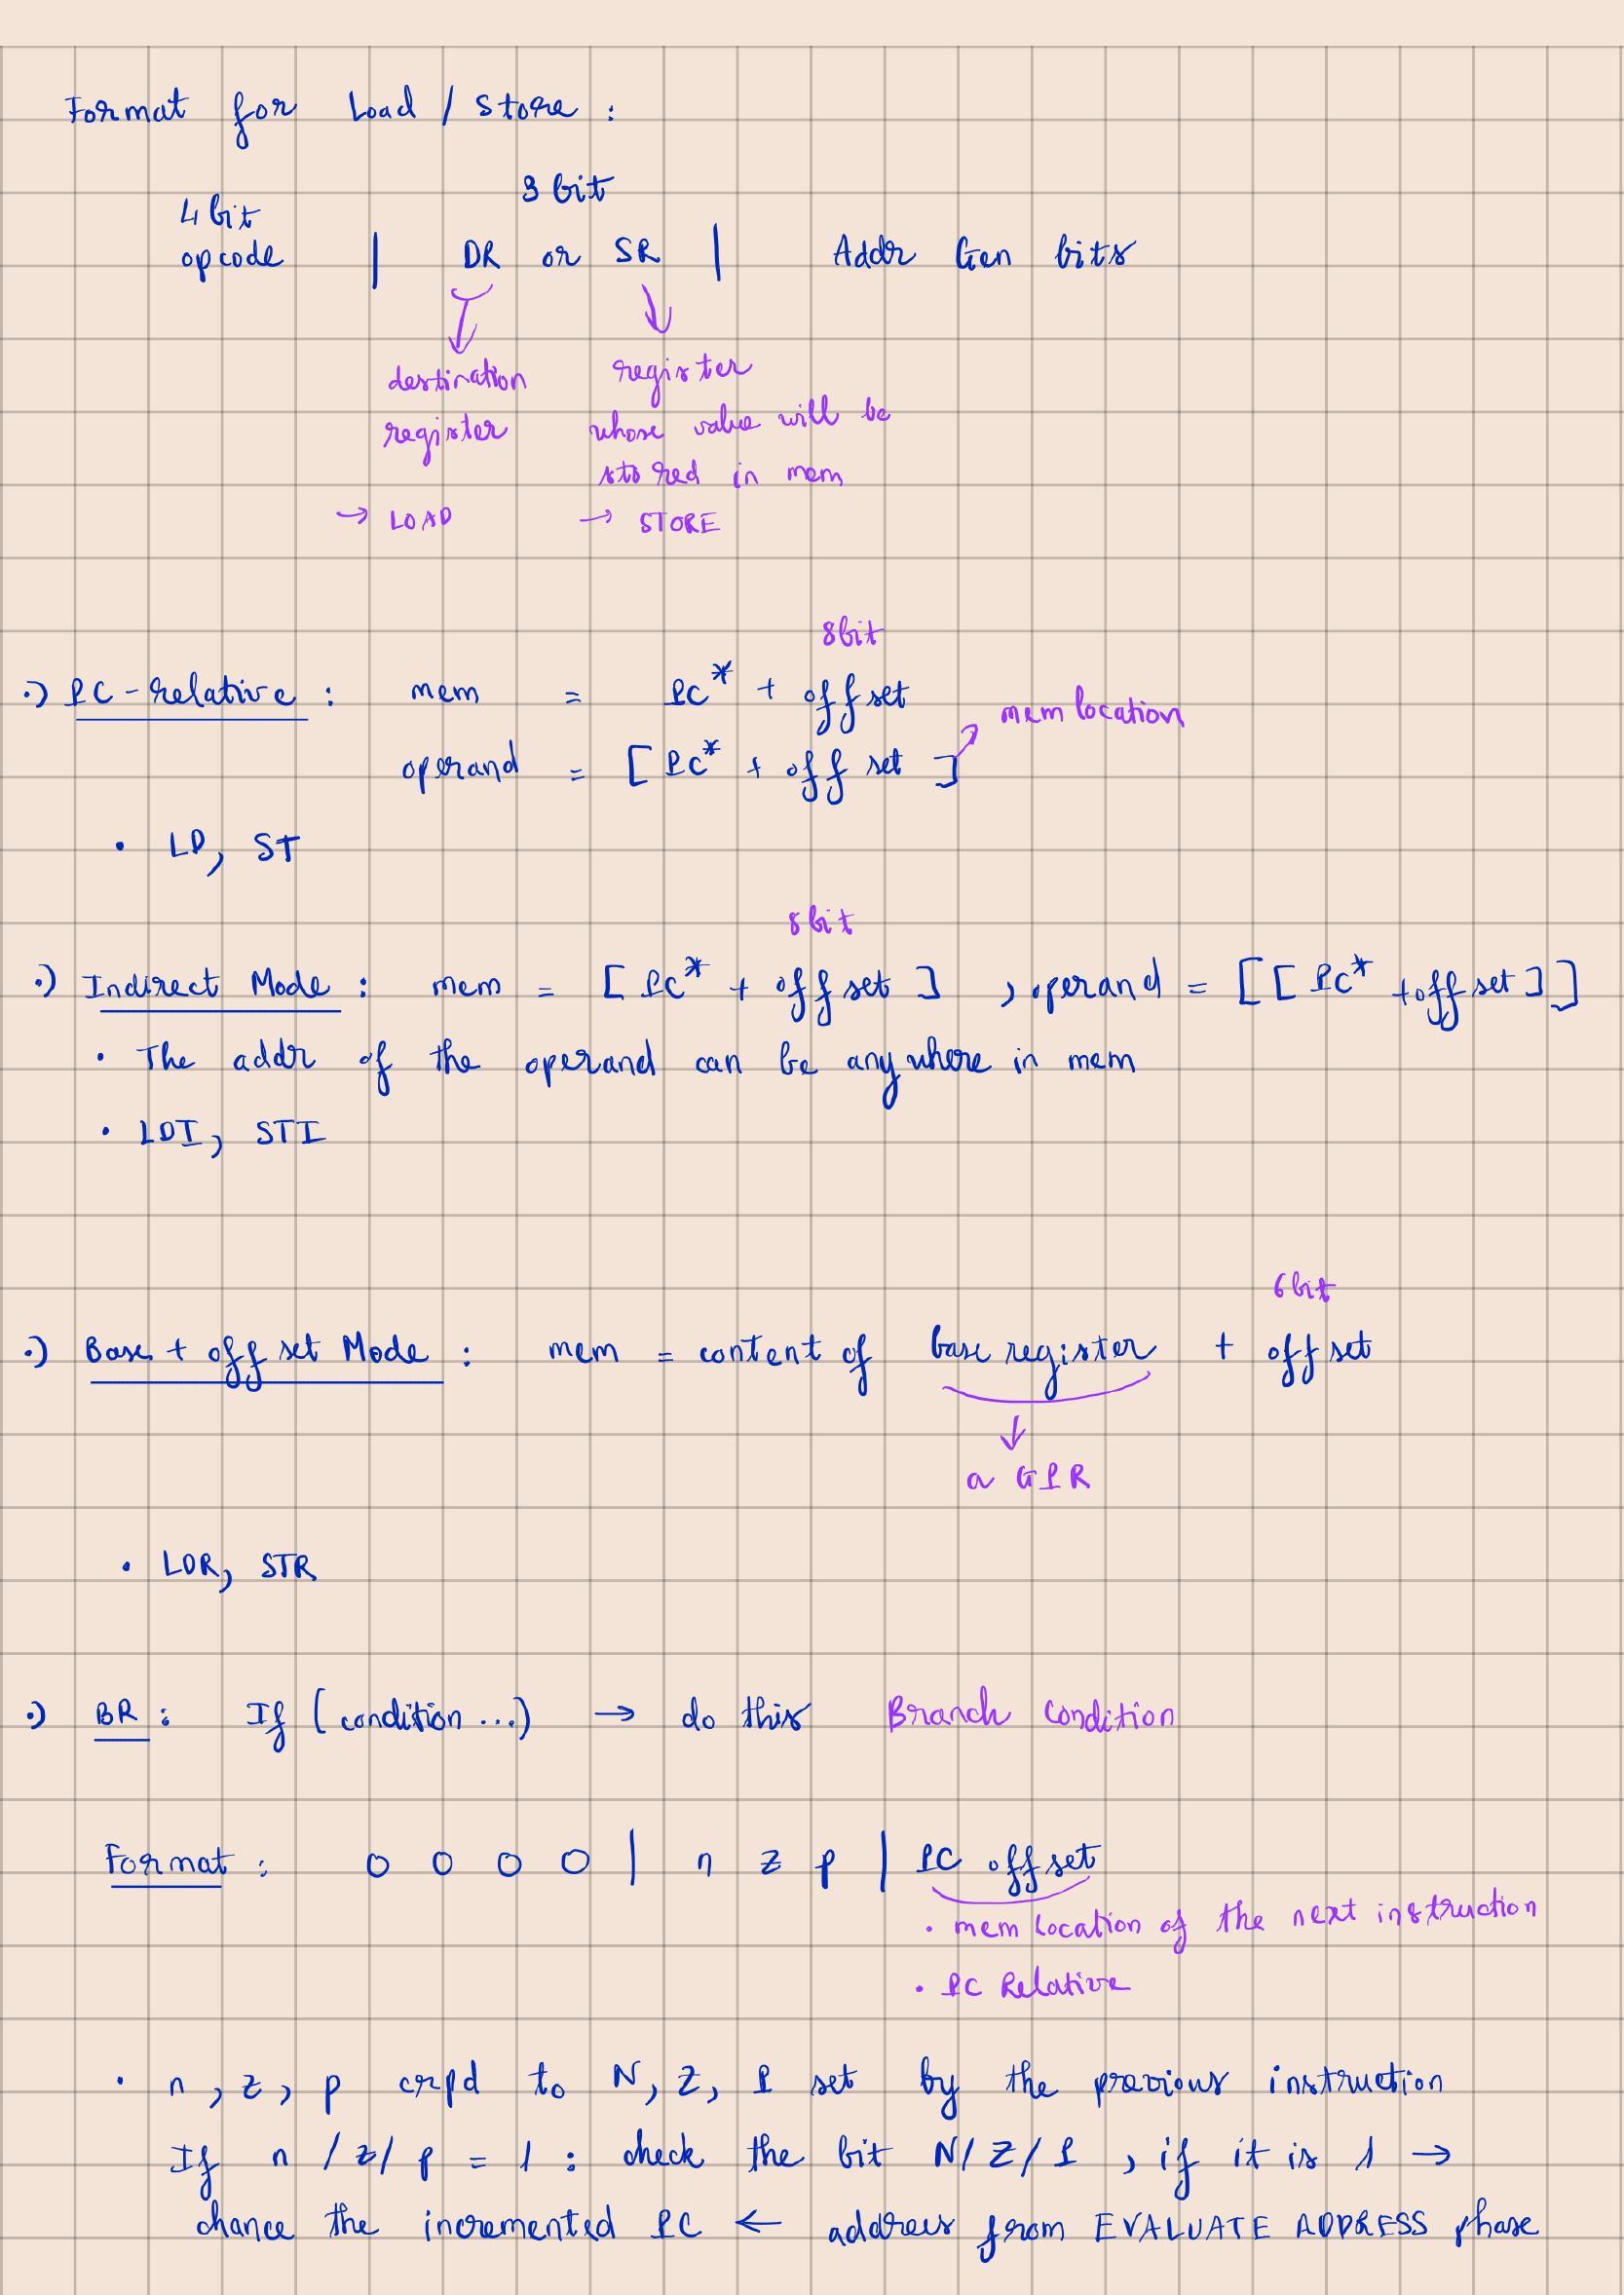 Format for Load / Store :
3 bit
4 bit
opcode | DR or SR | Addr Gen bits
destination register
register whose value will be
stored in mem
→ LOAD → STORE
8bit
·) PC-relative : mem = PC* + offset
mem location
operand = [ PC* + offset ]
• LD, ST
8bit
·) Indirect Mode : mem = [ PC* + offset ] , operand = [ [ PC* + offset ] ]
• The addr of the operand can be anywhere in mem
• LDI, STI
6bit
·) Base + offset Mode : mem = content of base register + offset
a GPR
• LDR, STR
·) BR : If (condition ...) → do this Branch Condition
Format : 0 0 0 0 | n z p | PC offset
• mem location of the next instruction
• PC Relative
• n, z, p crpd to N, Z, P set by the previous instruction
If n / z / p = 1 : check the bit N/Z/P , if it is 1 →
chance the incremented PC ← address from EVALUATE ADDRESS phase